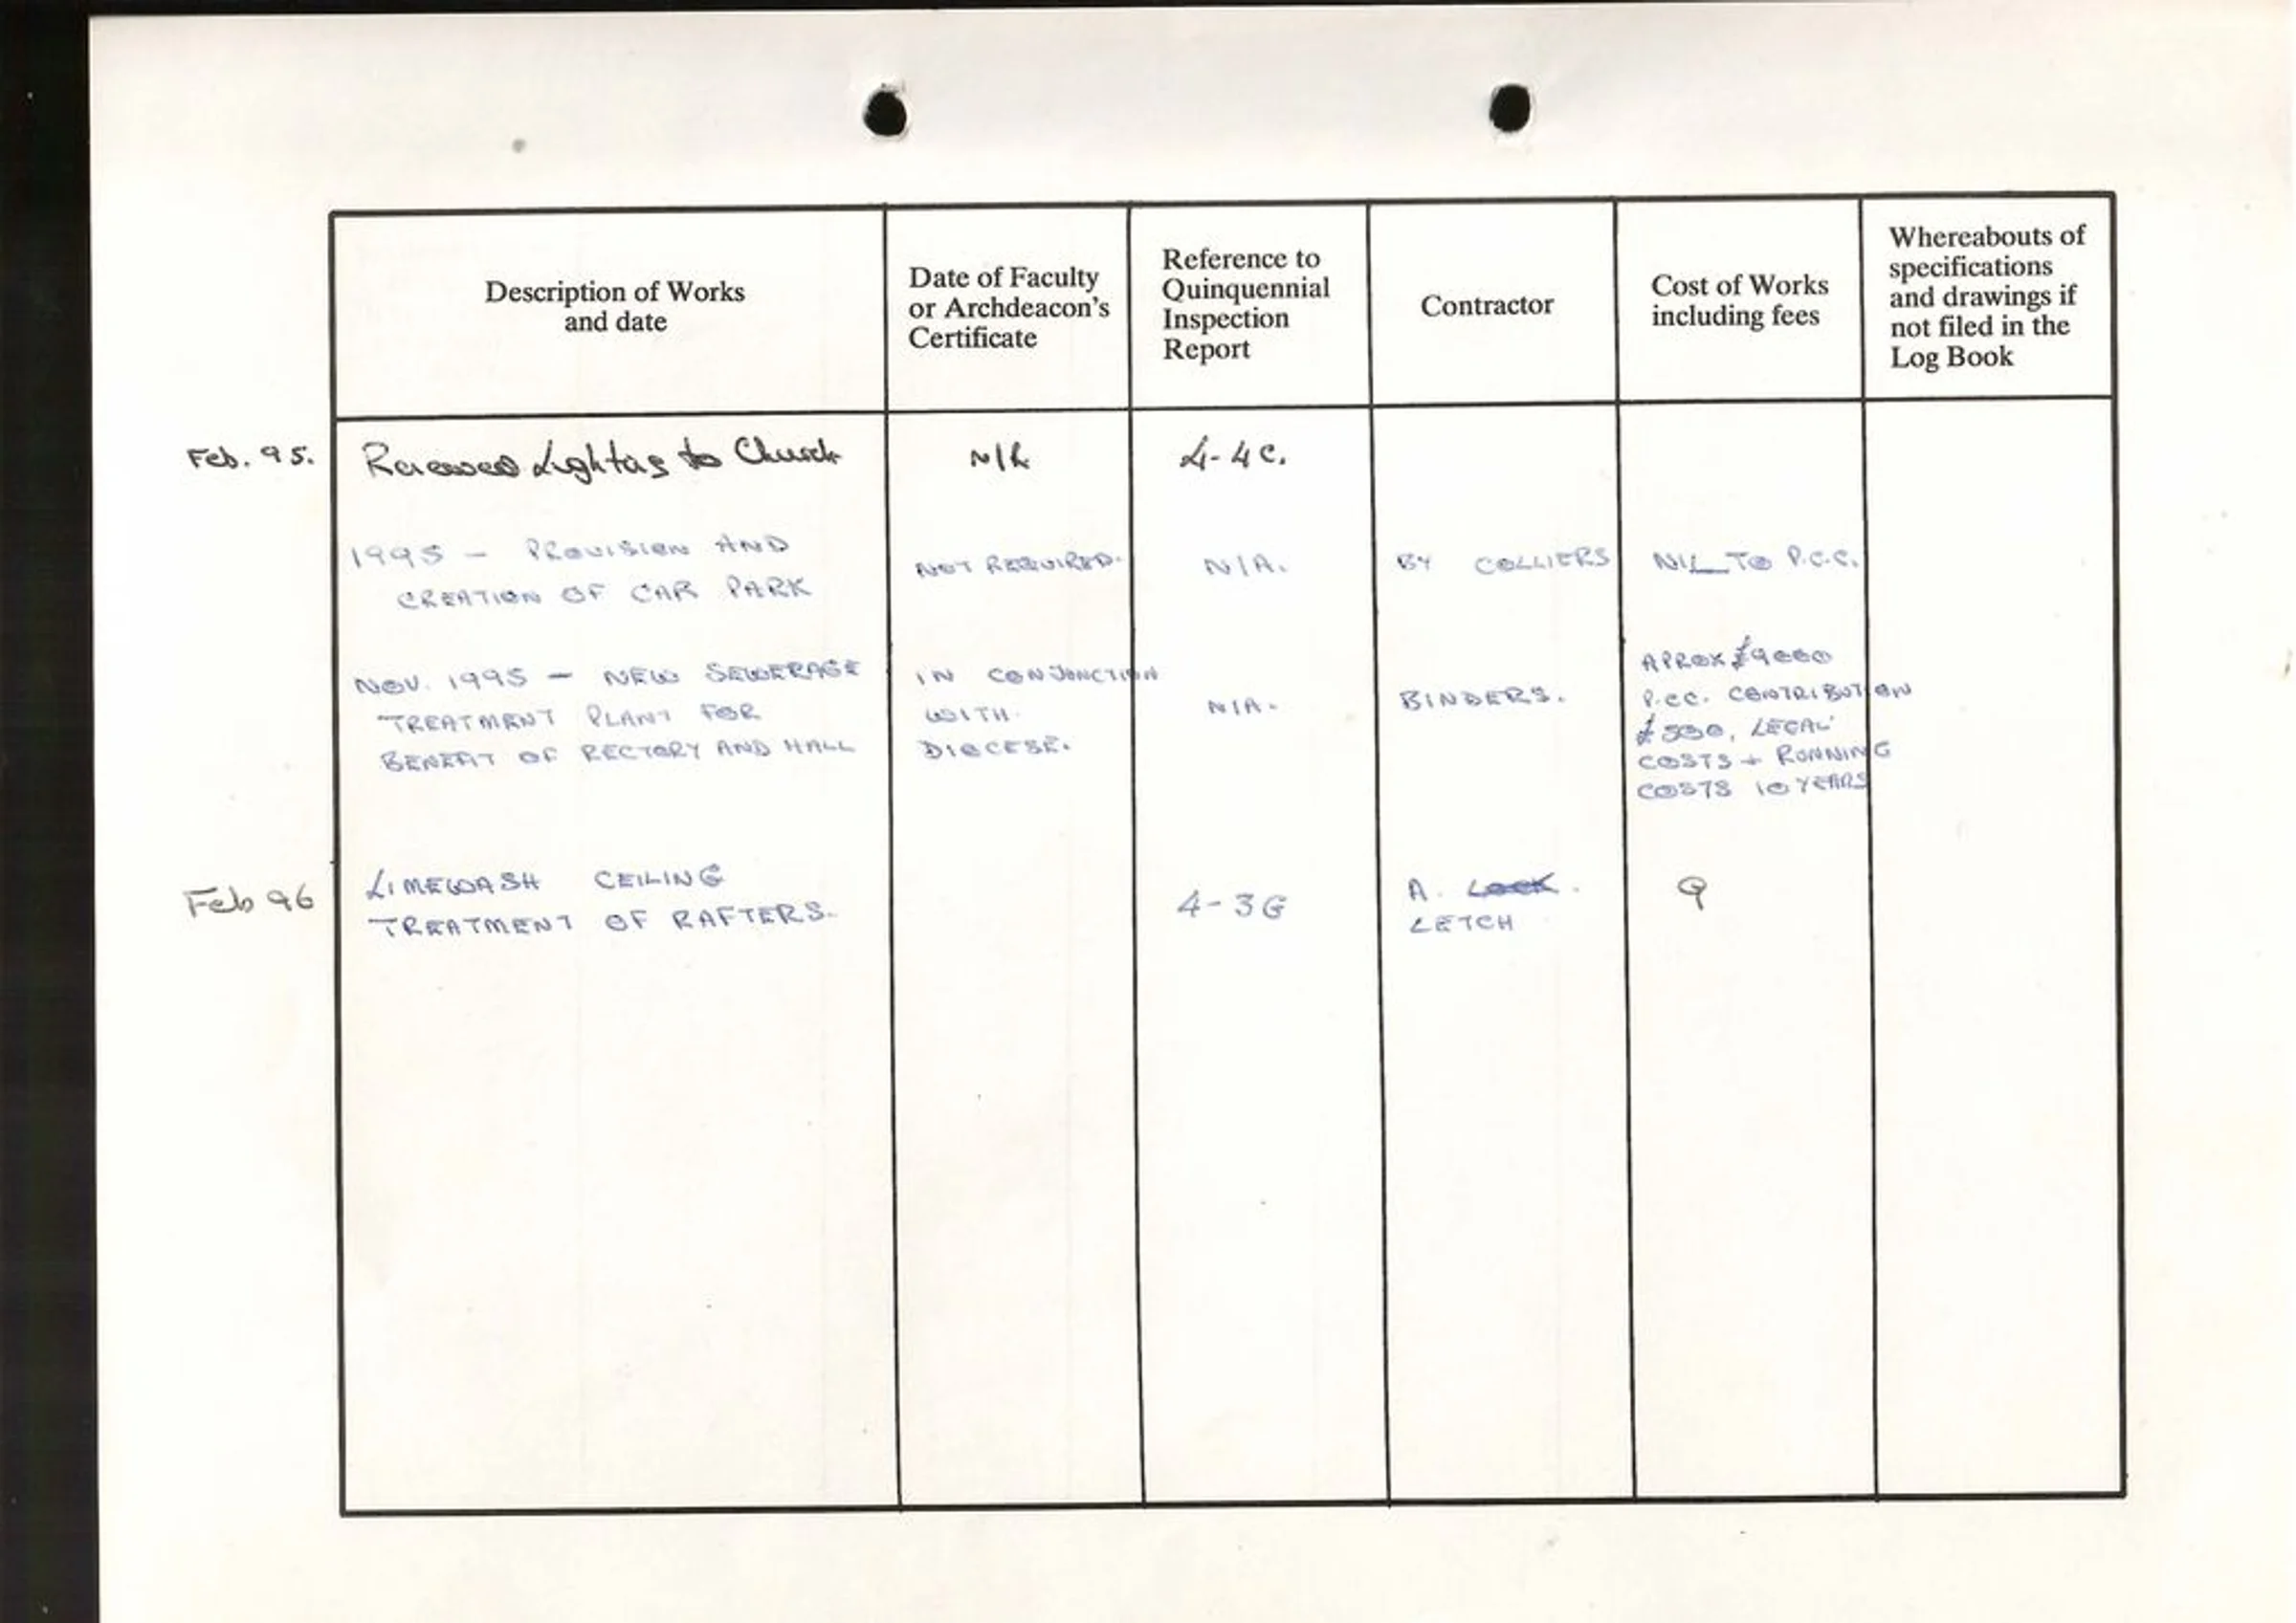 Description of Works
and date
Date of Faculty
or Archdeacon's
Certificate
Reference to
Quinquennial
Inspection
Report
Contractor
Cost of Works
including fees
Whereabouts of
specifications
and drawings if
not filed in the
Log Book
Feb. 95. Renewed Lighting to Church N/R 4-4c.
1995 - PROVISION AND
CREATION OF CAR PARK
NOT REQUIRED. N/A. BY COLLIERS NIL TO P.C.C.
NOV. 1995 - NEW SEWERAGE
TREATMENT PLANT FOR
BENEFIT OF RECTORY AND HALL
IN CONJUNCTION
WITH
DIOCESE.
N/A. BINDERS.
APROX £9000
P.CC. CONTRIBUTION
£500, LEGAL
COSTS + RUNNING
COSTS 10 YEARS
Feb 96
LIMEWASH CEILING
TREATMENT OF RAFTERS.
4-3G
A.
LETCH